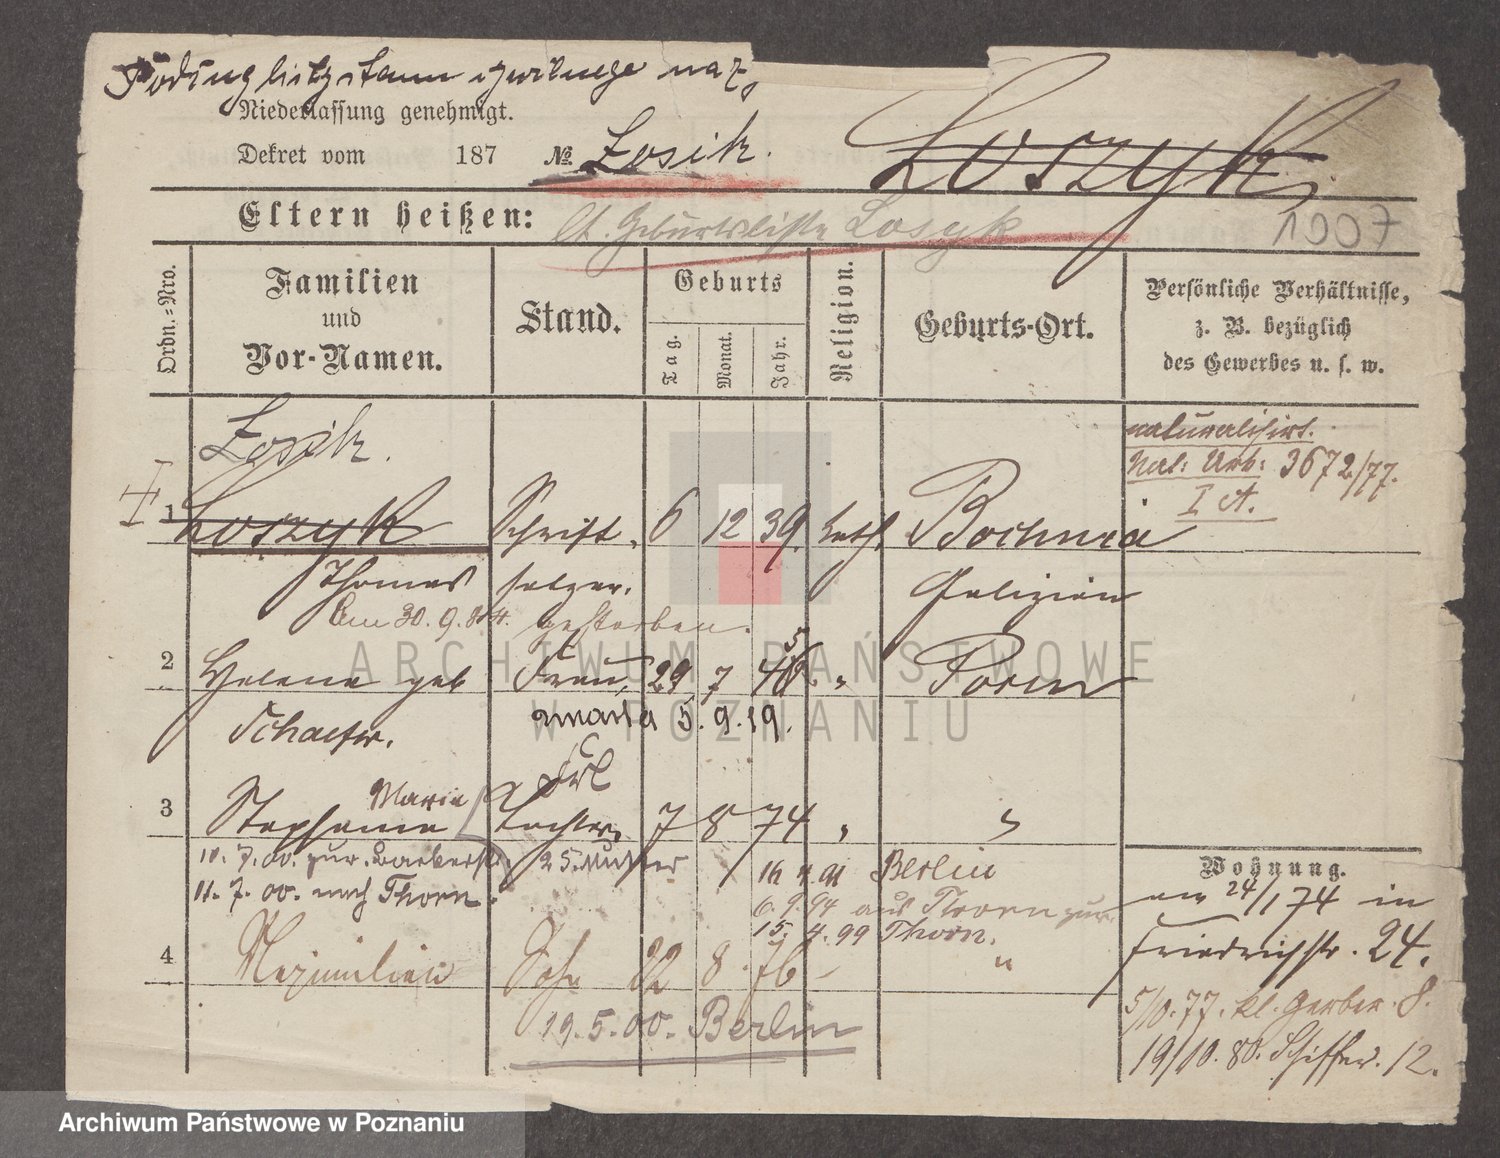 Podług listy stanu cywilnego naz.
Niederlassung genehmigt.
Dekret vom 187 № Łosik. Łoszyk
Eltern heißen: lt. Geburtsliste Losyk 1907
Ordn.-Nro.
Familien und Vor-Namen.
Stand.
Geburts
Tag. Monat. Jahr.
Religion.
Geburts-Ort.
Persönliche Verhältnisse,
z. B. bezüglich
des Gewerbes u. s. w.
Łosik.
naturalisirt.
Nat: Urk: 3672/77.
I A.
1 Łoszyk Schrift- 6 12 39. kath. Bochnia
Thomas setzer. Galizien
Am 30. 9. 84. gestorben.
2 Helena geb Frau, 29 7 46. 5 " Posen
Schaefer. zmarła 5. 9. 19.
Frl
3 Stephanie Marie Tochter, 7 8 74 " "
10. 7. 00. zur 25. Mutter
11. 7. 00. nach Thorn.
16 4. 91 Berlin
6. 9. 94 aus Thorn zur
15. 4. 99 Thorn.
4 Maximilian Sohn 22 8. 76 - "
19. 5. 00. Berlin
Wohnung.
am 24/1 74 in
Friedrichstr. 24.
5/10. 77. kl. Gerber. 8.
19/10. 80. Schiffer. 12.
ARCHIWUM PAŃSTWOWE
W POZNANIU
Archiwum Państwowe w Poznaniu